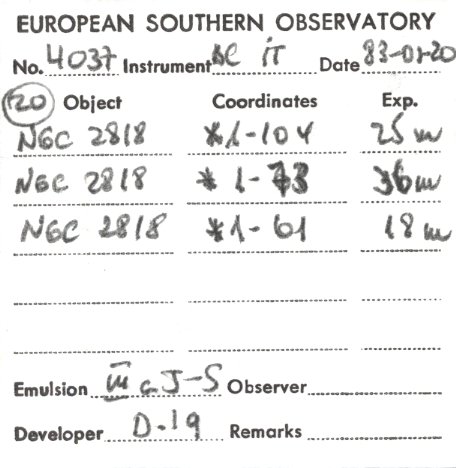 EUROPEAN SOUTHERN OBSERVATORY
No. 4037 Instrument BC IT Date 83-01-20
120 Object Coordinates Exp.
NGC 2818 *1-104 25 m
NGC 2818 * 1-73 36 m
NGC 2818 *1-61 18 m
Emulsion III a J-S Observer
Developer D-19 Remarks